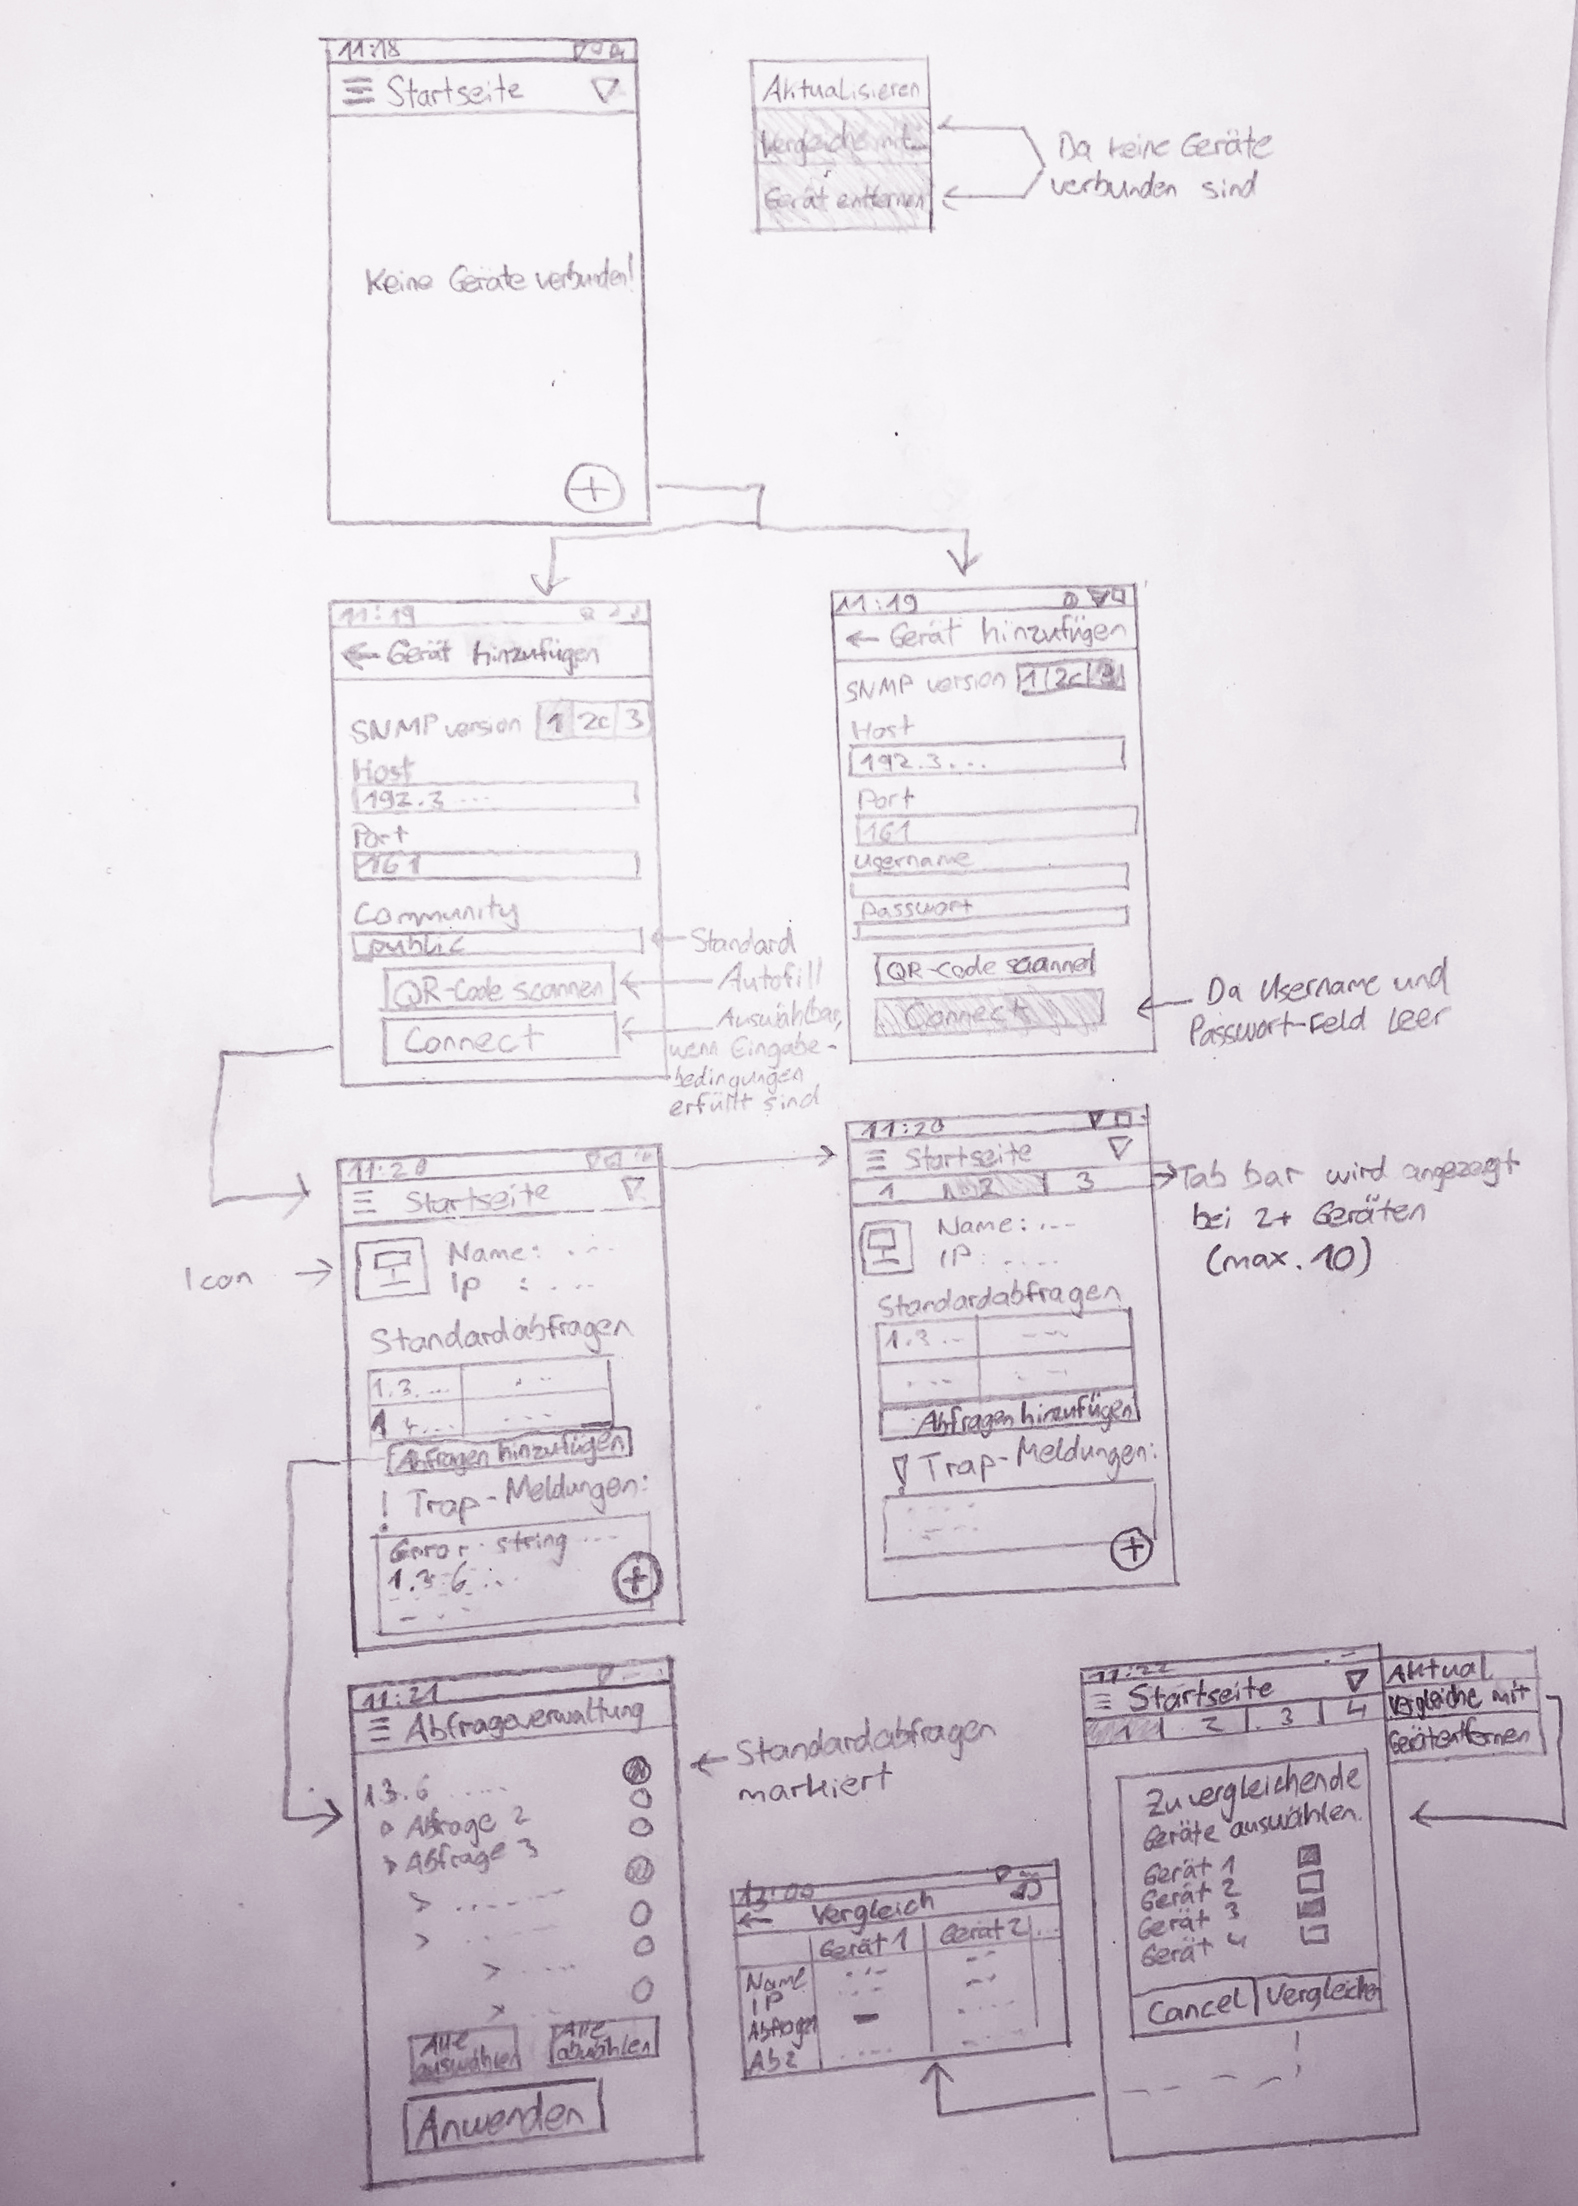 11:18
Startseite
Keine Geräte verbunden!
Aktualisieren
Vergleiche mit...
Gerät entfernen
Da keine Geräte
verbunden sind
11:19
Gerät hinzufügen
SNMP version 1 2c 3
Host
192.3 ...
Port
161
Community
public
QR-Code scannen
Connect
Standard
Autofill
Auswählbar,
wenn Eingabe-
bedingungen
erfüllt sind
11:19
Gerät hinzufügen
SNMP version 1 2c 3
Host
192.3...
Port
161
Username
Passwort
QR-Code scannen
Connect
Da Username und
Passwort-Feld leer
11:20
Startseite
Icon
Name: ...
Ip : ...
Standardabfragen
1.3. ...
Abfragen hinzufügen
! Trap-Meldungen:
Error: string ...
1.3 6 ...
11:20
Startseite
1 2 3
Name: ...
IP: ....
Standardabfragen
1.3 ...
Abfragen hinzufügen
! Trap-Meldungen:
Tab bar wird angezeigt
bei 2+ Geräten
(max. 10)
11:21
Abfrageverwaltung
1.3.6 ....
> Abfrage 2
> Abfrage 3
Alle
auswählen
Alle
abwählen
Anwenden
Standardabfragen
markiert
11:22
Startseite
1 2 3 4
Aktual.
Vergleiche mit
Gerät entfernen
Zu vergleichende
Geräte auswählen.
Gerät 1
Gerät 2
Gerät 3
Gerät 4
Cancel Vergleiche
Vergleich
Gerät 1 Gerät 2 ...
Name
IP
Abfragen
Ab2